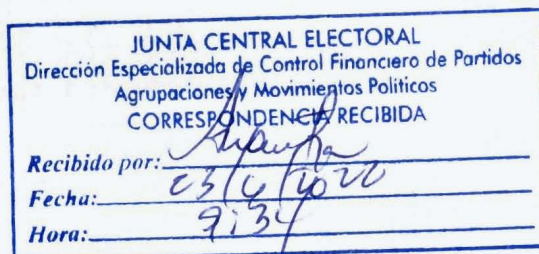 JUNTA CENTRAL ELECTORAL
Dirección Especializada de Control Financiero de Partidos
Agrupaciones y Movimientos Politicos
CORRESPONDENCIA RECIBIDA
Recibido por:
Fecha: 23/6/2022
Hora: 9:34